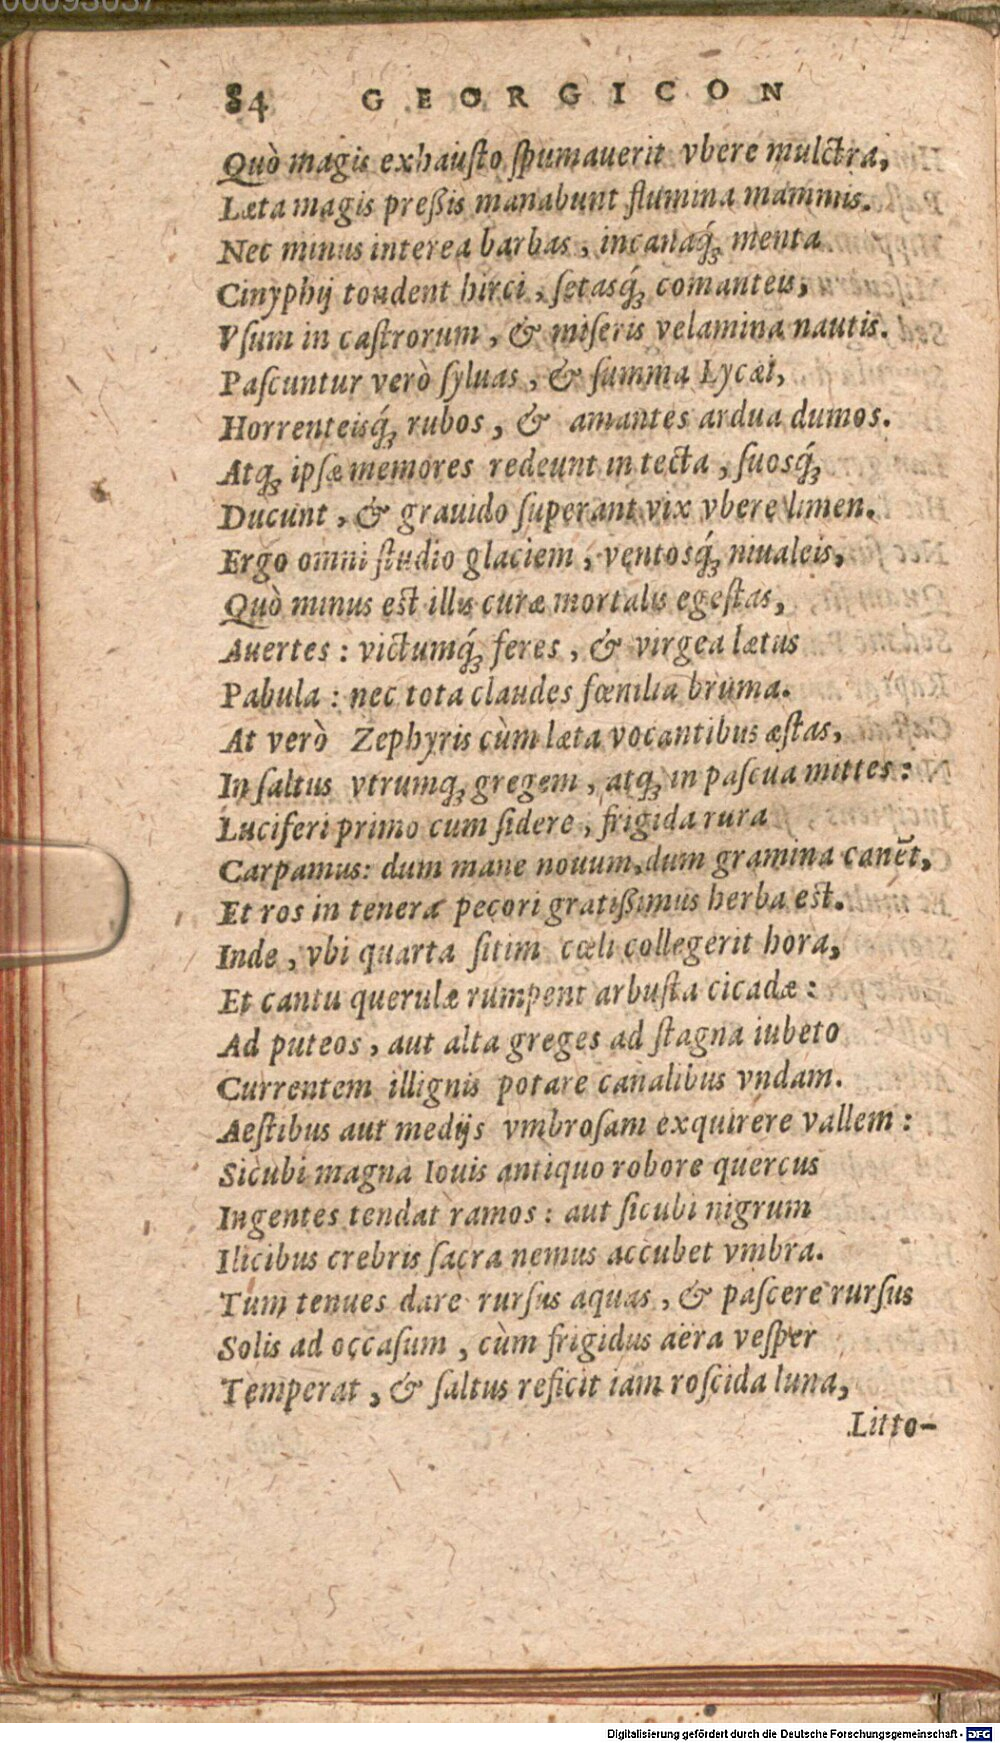 00093037
84 GEORGICON
Quò magis exhausto spumauerit vbere mulctra,
Læta magis preßis manabunt flumina mammis.
Nec minus interea barbas, incanaq́; menta
Cinyphij tondent hirci, setasq́; comanteis,
Vsum in castrorum, & miseris velamina nautis.
Pascuntur verò syluas, & summa Lycæi,
Horrenteisq́; rubos, & amantes ardua dumos.
Atq; ipsæ memores redeunt in tecta, suosq́;
Ducunt, & grauido superant vix vbere limen.
Ergo omni studio glaciem, ventosq́; niualeis,
Quò minus est illis curæ mortalis egestas,
Auertes: victumq́; feres, & virgea lætus
Pabula: nec tota claudes fœnilia bruma.
At verò Zephyris cùm læta vocantibus æstas,
In saltus vtrumq; gregem, atq; in pascua mittes:
Luciferi primo cum sidere, frigida rura
Carpamus: dum mane nouum, dum gramina canēt,
Et ros in tenera pecori gratißimus herba est.
Inde, vbi quarta sitim cœli collegerit hora,
Et cantu querulæ rumpent arbusta cicadæ:
Ad puteos, aut alta greges ad stagna iubeto
Currentem illignis potare canalibus vndam.
Aestibus aut medijs vmbrosam exquirere vallem:
Sicubi magna Iouis antiquo robore quercus
Ingentes tendat ramos: aut sicubi nigrum
Ilicibus crebris sacra nemus accubet vmbra.
Tum tenues dare rursus aquas, & pascere rursus
Solis ad occasum, cùm frigidus aëra vesper
Temperat, & saltus reficit iam roscida luna,
Litto-
Digitalisierung gefördert durch die Deutsche Forschungsgemeinschaft - DFG